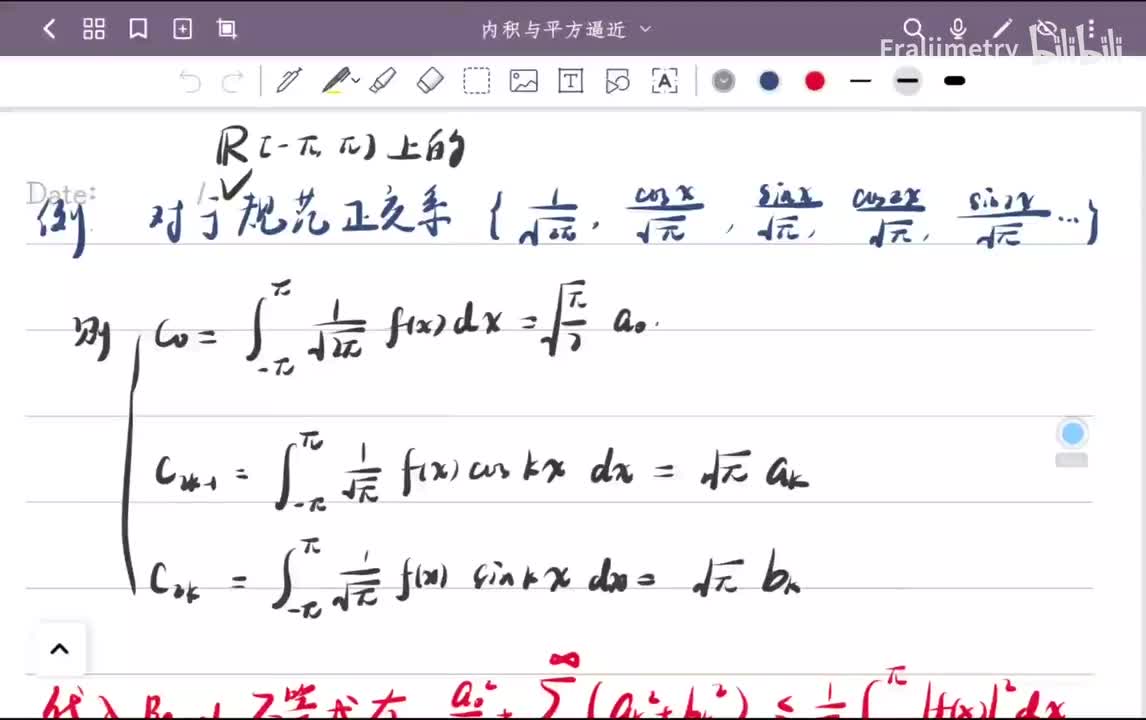 内积与平方逼近
Eraliimetry bilibili
R[-π, π]上的
Date: /
例 对于规范正交系 { 1/√2π, cosx/√π, sinx/√π, cos2x/√π, sin2x/√π ... }
则 C₀ = ∫_{-π}^{π} 1/√2π f(x) dx = √(π/2) a₀.
C_{2k-1} = ∫_{-π}^{π} 1/√π f(x) cos kx dx = √π a_k
C_{2k} = ∫_{-π}^{π} 1/√π f(x) sin kx dx = √π b_k
代入 不等式有 a₀²/ + ∑^∞ (a_k² + b_k²) ≤ 1/ ∫^π |f(x)|² dx